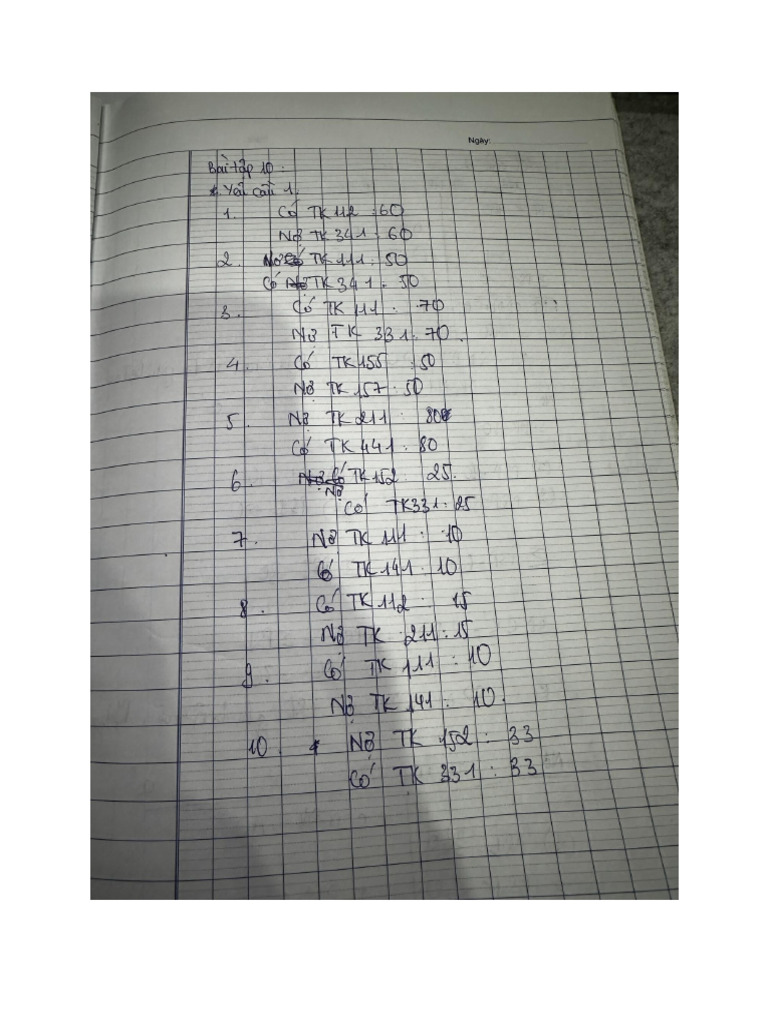 Ngày:
Bài tập 10:
* Yêu cầu 1.
1. Có TK 112 : 60
Nợ TK 341 : 60
2. Nợ TK 111 : 50
Có TK 341 : 50
3. Có TK 111 : 70
Nợ TK 331 : 70.
4. Có TK 155 : 50
Nợ TK 157 : 50
5. Nợ TK 211 : 80
Có TK 441 : 80
6. Nợ TK 152 : 25.
Có TK 331 : 25
7. Nợ TK 111 : 10
Có TK 141 : 10
8. Có TK 112 : 15
Nợ TK 211 : 15
9. Có TK 111 : 10
Nợ TK 141 : 10.
10. Nợ TK 152 : 33
Có TK 331 : 33